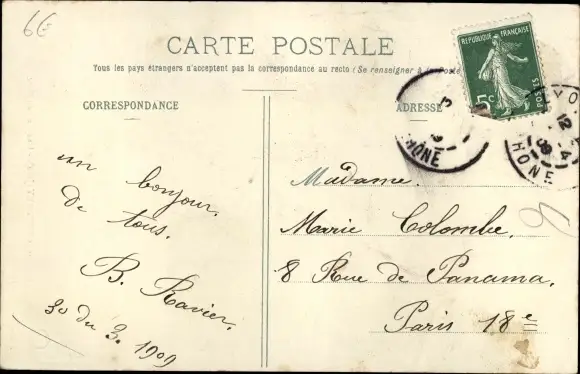 6€
CARTE POSTALE
Tous les pays étrangers n'acceptent pas la correspondance au recto (Se renseigner à la Poste)
CORRESPONDANCE
ADRESSE
REPUBLIQUE FRANÇAISE
5c
POSTES
RHÔNE
YO
12
4
09
RHONE
un bonjour.
de tous.
B. Ravier.
30 du 3. 1909
Madame.
Marie Colombe.
8 Rue de Panama.
Paris 18e